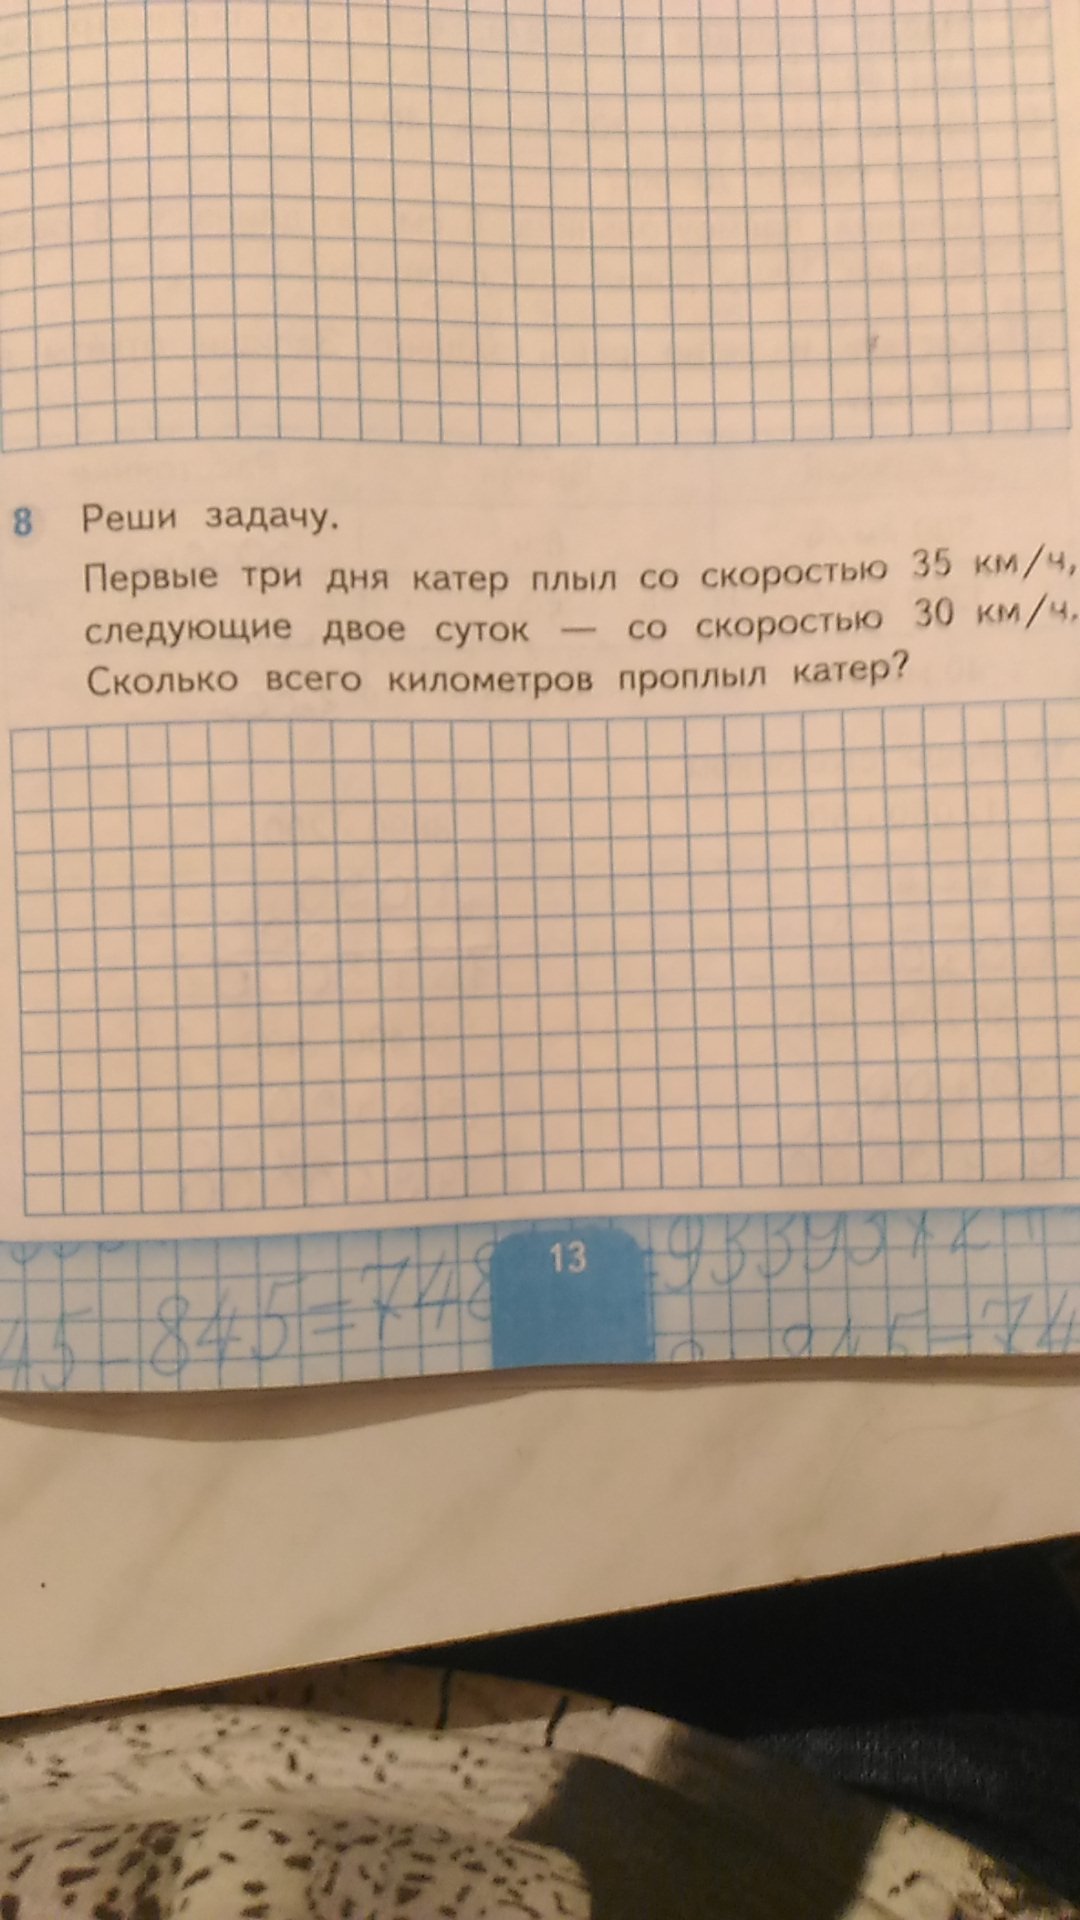 8 Реши задачу.
Первые три дня катер плыл со скоростью 35 км/ч,
следующие двое суток — со скоростью 30 км/ч.
Сколько всего километров проплыл катер?
13
45-845=748